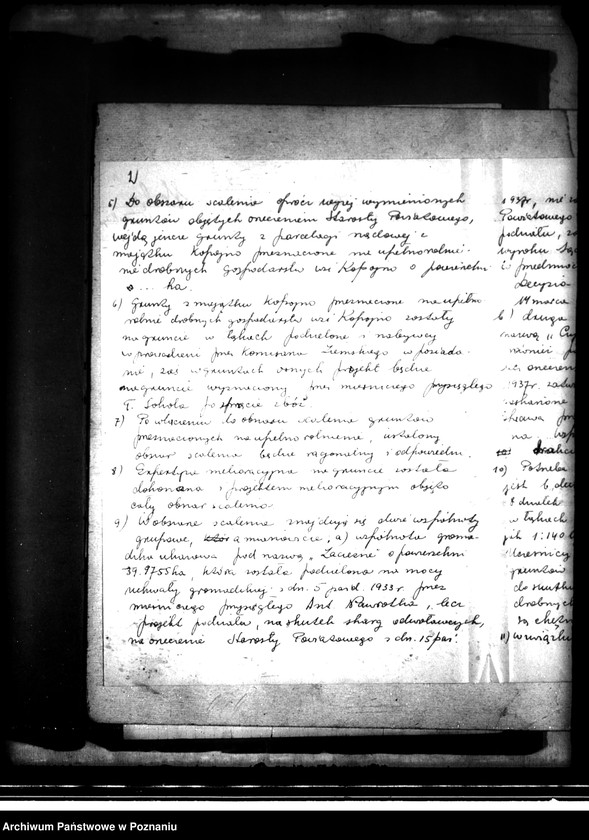 2)
5) Do obszaru scalenia oprócz wyżej wymienionych
gruntów objętych orzeczeniem Starosty Powiatowego,
wejdą jeszcze grunty z parcelacji rządowej z
majątku Kopojno przeznaczone na upełnorolnie-
nie drobnych gospodarstw wsi Kopojno o powierzchni
o ... ha.
6) Grunty z majątku Kopojno przeznaczone na upełno
rolnie drobnych gospodarstw wsi Kopojno zostały
na gruncie w łąkach podzielone i nabywcy
wprowadzeni przez Komisarza Ziemskiego w posiada-
nie, zaś w gruntach ornych projekt będzie
na gruncie wyznaczony przez mierniczego przysięgłego
T. Sokoła po sprzęcie zbóż.
7) Po włączeniu do obszaru scalenia gruntów
przeznaczonych na upełnorolnienie, ustalony
obszar scalenia będzie racjonalny i odpowiedni.
8) Ekspertyza melioracyjna na gruncie została
dokonana i projektem melioracyjnym objęto
cały obszar scalenia
9) W obszarze scalenia znajdują się dwie wspólnoty
gruntowe, a mianowicie, a) wspólnota groma-
dzka obszarowa pod nazwą "Zacisze" o powierzchni
39.8755 ha, która została podzielona na mocy
uchwały gromadzkiej z dn. 5 paźd. 1933 r. przez
mierniczego przysięgłego Ant. Nawrotka, lecz
projekt podziału, na skutek skarg odwoławczych,
na orzeczenie Starosty Powiatowego z dn. 15 paź.
1937r, nie
Powiatowego
podziału, za
wyroku
i przedmio
Decyzja
14 marca
b) druga
nazwą
również
orzeczen
1937r.
na
10) Potrzeba
jest
działek
w łąkach
gruntów
do skutku
drobnych
są
11) w związku